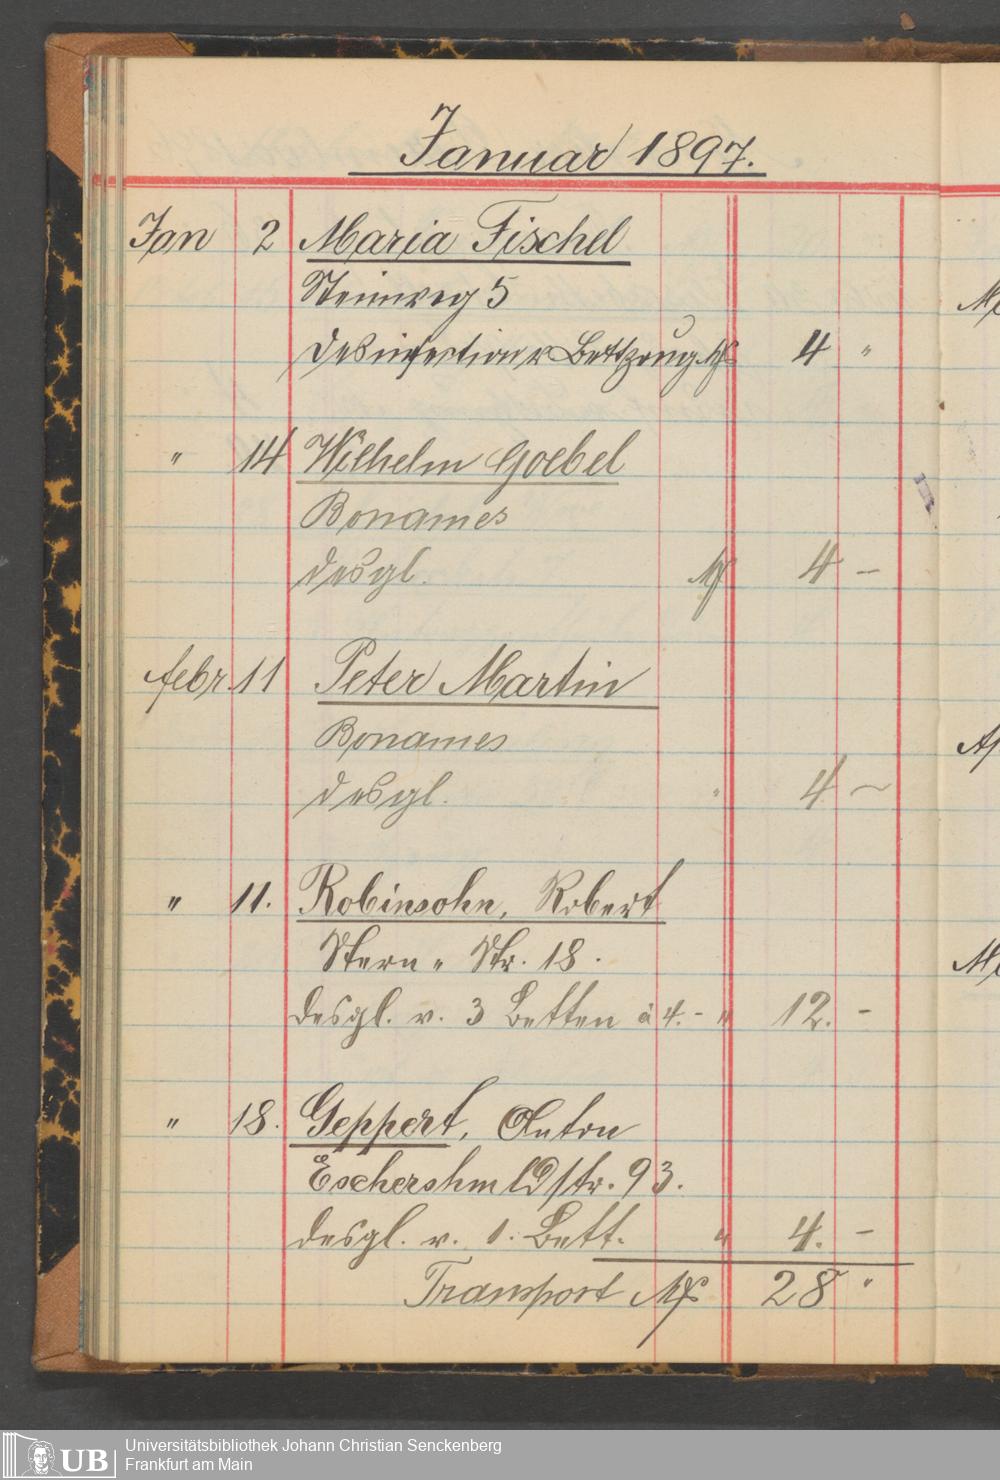 Januar 1897.
Jan 2 Maria Fischel
Steinweg 5
Desinfection v Bettzeug M 4 "
" 14 Wilhelm Goebel
Bonames
desgl. M 4 –
febr. 11 Peter Martin
Bonames
desgl. " 4 –
" 11. Robinsohn, Robert
Stern " Str. 18.
desgl. v. 3 Betten à 4. – " 12. –
" 18. Geppert, Anton
str. 93.
desgl. v. 1. Bett. " 4. –
Transport M 28 "
UB
Universitätsbibliothek Johann Christian Senckenberg
Frankfurt am Main